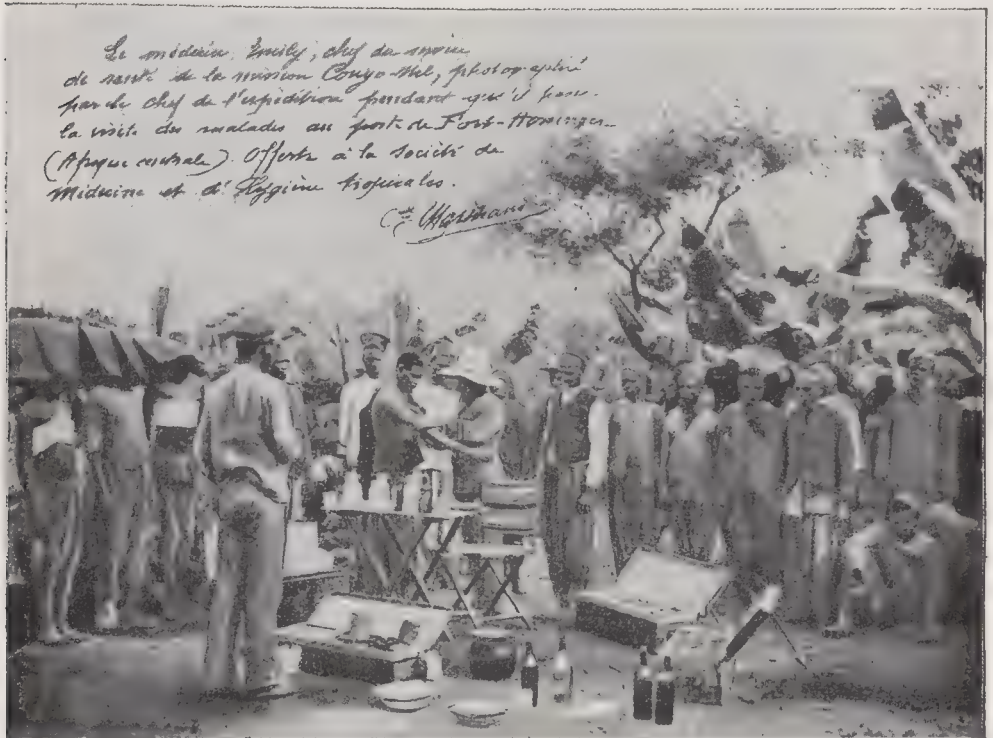 Le médecin Emily, chef du service
de santé de la mission Congo-Nil, photographié
par le chef de l'expédition pendant qu'il passe
la visite des malades au poste de Fort-Hossinger
(Afrique centrale). Offerte à la Société de
Médecine et d'Hygiène tropicales.
Ct Marchand